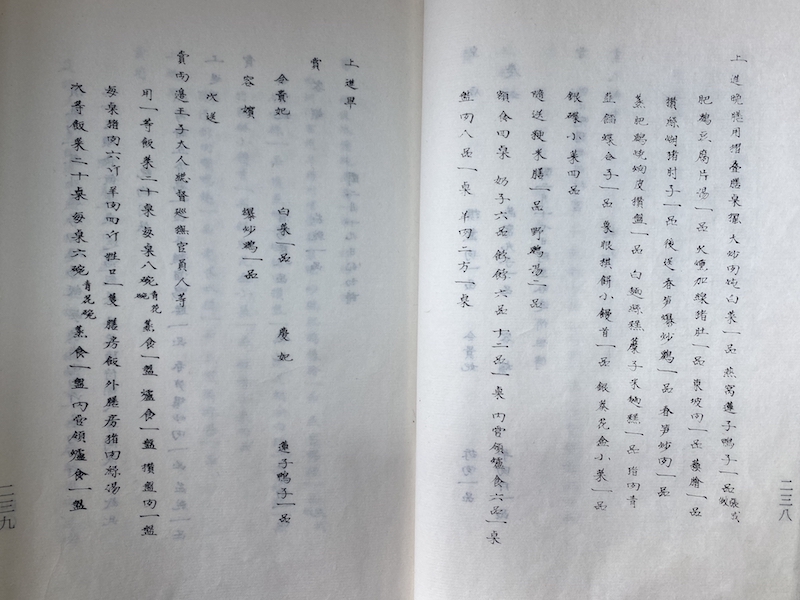 上進晚膳用摺叠膳桌擺大炒肉炖白菜一品燕窩蓮子鴨子一品張成做
肥鷄豆腐片湯一品火燻加線猪肚一品東坡肉一品蘇膾一品
攢絲焖猪肘子一品後送春笋爆炒鷄一品春笋炒肉一品
蒸肥鷄燒狍皮攢盤一品白麵絲糕糜子米麵糕一品猪肉青
韭餡蝶合子一品象眼棋餅小饅首一品銀葵花盒小菜一品
銀碟小菜四品
隨送粳米膳一品野鷄湯二品
額食四桌奶子六品餑餑六品十二品一桌内管領爐食六品一桌
盤肉八品一桌羊肉二方一桌
二三八
上進畢
賞
令貴妃 白菜一品 慶妃 蓮子鴨子一品
容嬪 爆炒鷄一品
次送
賞兩邊王子大人總督廵撫官員人等
用一等飯菜二十桌每桌八碗青花碗蒸食一盤爐食一盤攢盤肉一盤
每桌猪肉六斤羊肉四斤膳房飯外膳房猪肉絲湯
次等飯菜二十桌每桌六碗青花碗蒸食一盤内管領爐食一盤
二三九